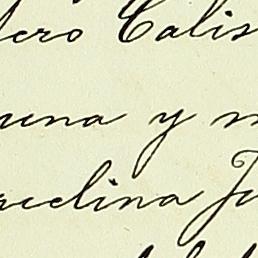 ero Calis
una y m
rcelina Ju